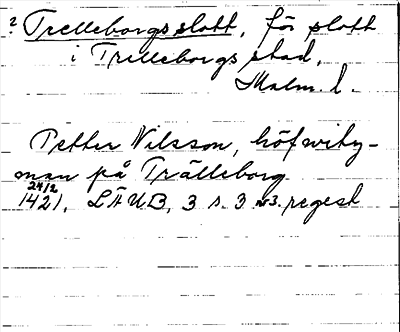 ? Trelleborgs slott, för slott
i Trelleborgs stad,
Malm. l.
Petter Nilsson, höfwitz-
man på Trälleborg
24/2
1421. LÄUB, 3 s. 3 n3. regest